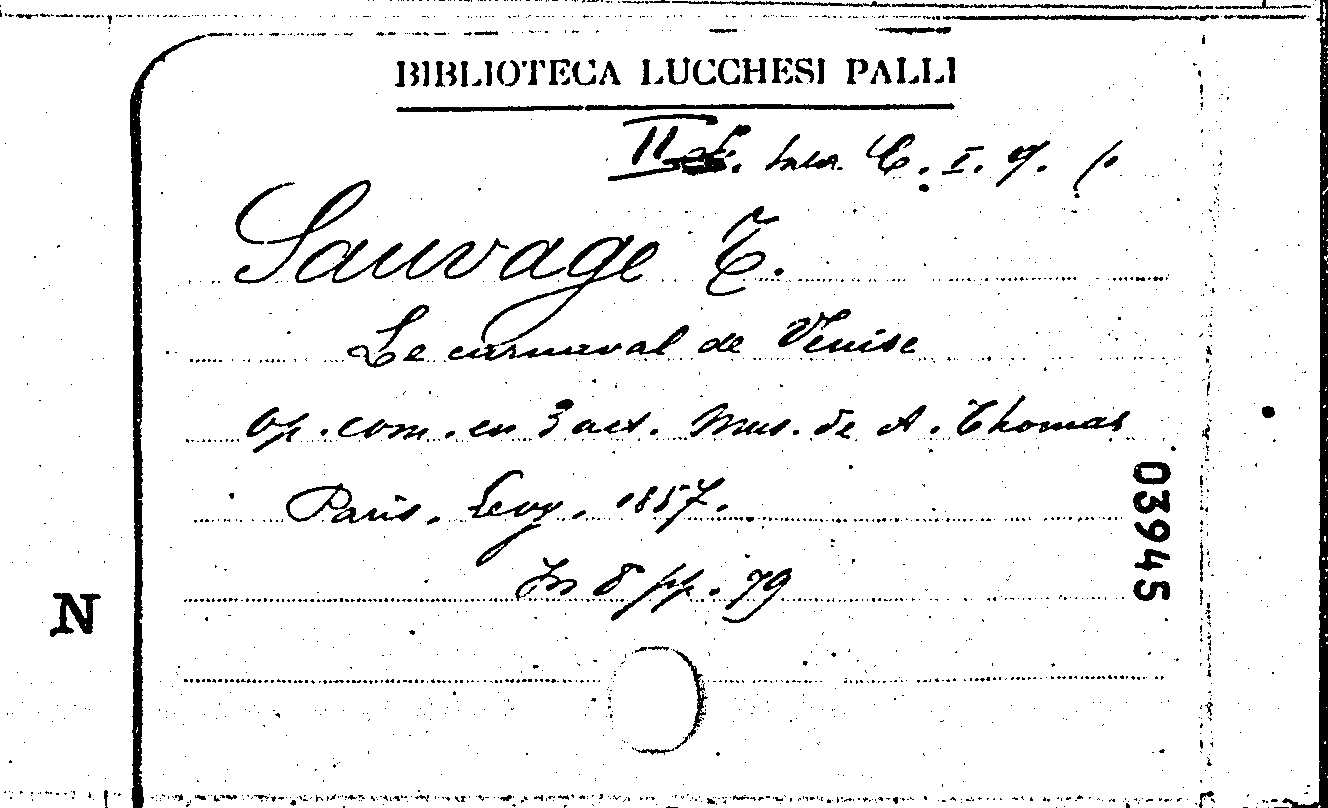 BIBLIOTECA LUCCHESI PALLI
II Sala C. I. 9.
Sauvage T.
Le carnaval de Venise
Op. com. en 3 act. Mus. de A. Thomas
Paris. Levy. 1857.
In 8 pp. 79
03945
N